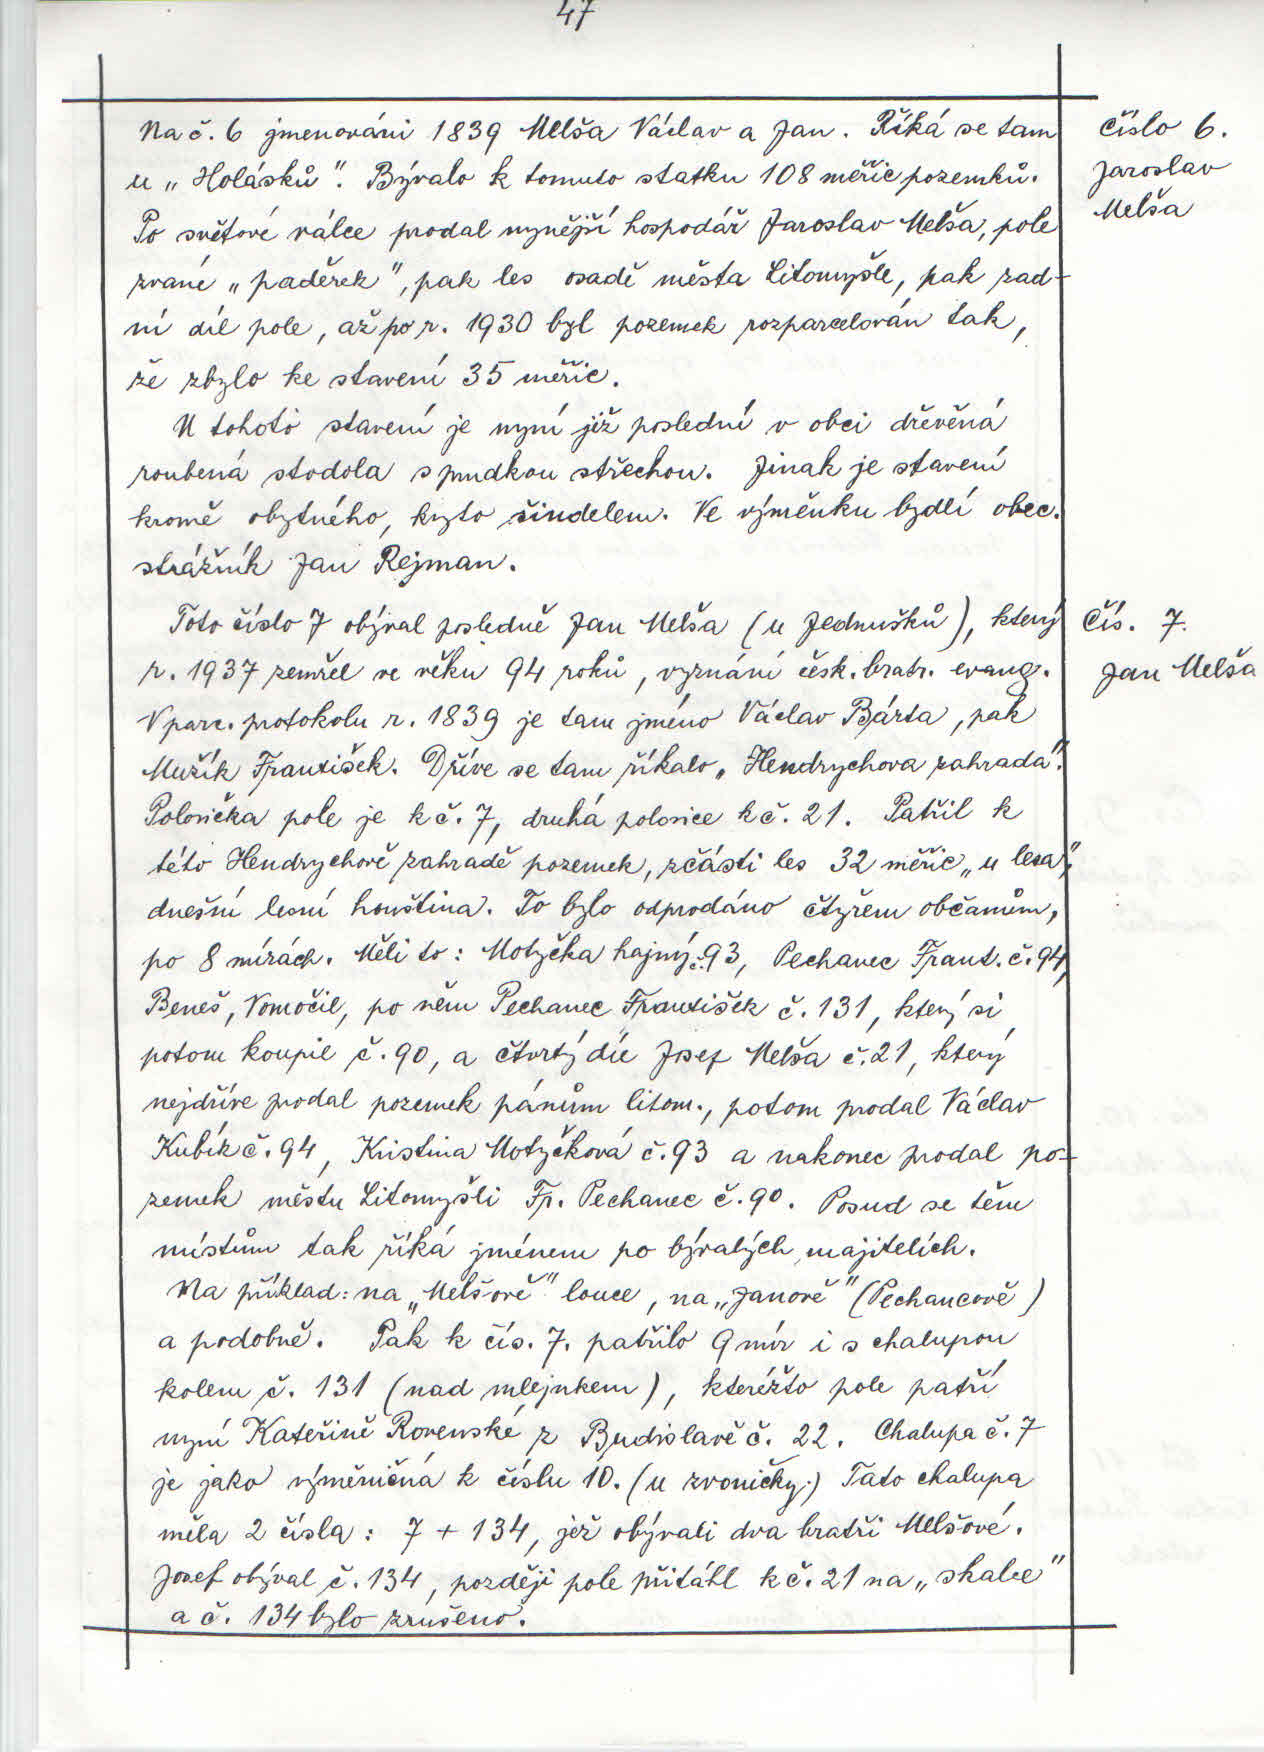 47
Na č. 6 jmenováni 1839 Melša Václav a Jan. Říká se tam
u „Holásků". Bývalo k tomuto statku 108 měřic pozemků.
Po světové válce prodal nynější hospodář Jaroslav Melša, pole
zvané „paděrek", pak les osadě města Litomyšle, pak zad-
ní díl pole, až po r. 1930 byl pozemek rozparcelován tak,
že zbylo ke stavení 35 měřic.
Číslo 6.
Jaroslav
Melša
U tohoto stavení je nyní již poslední v obci dřevěná
roubená stodola s prudkou střechou. Jinak je stavení
kromě obytného, kryto šindelem. Ve výměnku bydlí obec.
strážník Jan Rejman.
Toto číslo 7 obýval posledně Jan Melša (u Jednušků), který
r. 1937 zemřel ve věku 94 roků, vyznání česk. bratr. evang.
V parc. protokolu r. 1839 je tam jméno Václav Bárta, pak
Mužík František. Dříve se tam říkalo „Hendrychova zahrada".
Polovička pole je k č. 7, druhá polovice k č. 21. Patřil k
této Hendrychově zahradě pozemek, zčásti les 32 měřic „u lesa",
dnešní lesní houština. To bylo odprodáno čtyřem občanům,
po 8 mírách. Měli to: Motyčka hajný č. 93, Pechanec Frant. č. 94,
Beneš, Vomočil, po něm Pechanec František č. 131, který si
potom koupil č. 90, a čtvrtý díl Josef Melša č. 21, který
nejdříve prodal pozemek pánům litom., potom prodal Václav
Kubík č. 94, Kristina Motyčková č. 93 a nakonec prodal po-
zemek městu Litomyšli Fr. Pechanec č. 90. Posud se těm
místům tak říká jménem po bývalých majitelích.
Čís. 7.
Jan Melša
Na příklad: na „Melšově" louce, na „Janově" (Pechancově)
a podobně. Pak k čís. 7. patřilo 9 mír i s chalupou
kolem č. 131 (nad mlejnkem), kteréžto pole patří
nyní Kateřině Rovenské z Budislavě č. 22. Chalupa č. 7
je jako výměničná k číslu 10. (u zvoničky.) Tato chalupa
měla 2 čísla: 7 + 134, jež obývali dva bratři Melšové.
Josef obýval č. 134, později pole přitáhl k č. 21 na „skalce"
a č. 134 bylo zrušeno.